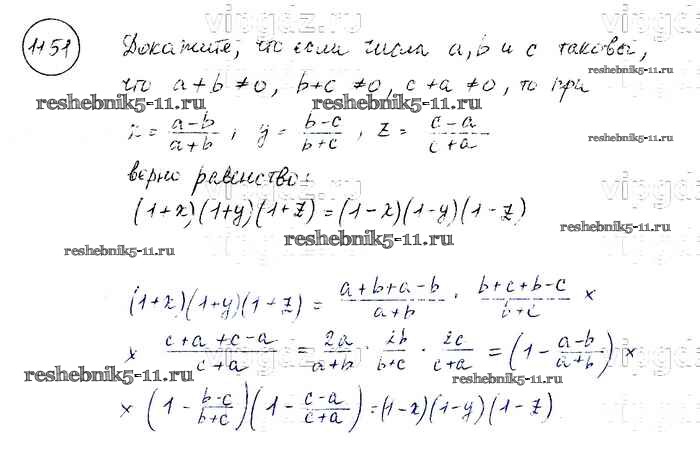 1151 Докажите, что если числа a, b и c таковы,
что a+b ≠0, b+c ≠0, c+a ≠0, то при
x = (a-b)/(a+b); y = (b-c)/(b+c), z = (c-a)/(c+a)
верно равенство:
(1+x)(1+y)(1+z)=(1-x)(1-y)(1-z)
(1+x)(1+y)(1+z) = (a+b+a-b)/(a+b) · (b+c+b-c)/(b+c) ×
× (c+a+c-a)/(c+a) = 2a/(a+b) · 2b/(b+c) · 2c/(c+a) = (1 - (a-b)/(a+b)) ×
× (1 - (b-c)/(b+c))(1 - (c-a)/(c+a)) = (1-x)(1-y)(1-z)
vipgdz.ru
reshebnik5-11.ru
reshebnik5-11.ru
reshebnik5-11.ru
vipgdz.ru
reshebnik5-11.ru
reshebnik5-11.ru
vipgdz.ru
reshebnik5-11.ru
reshebnik5-11.ru
vipgdz.ru
reshebnik5-11.ru
reshebnik5-11.ru